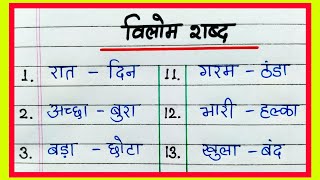 विलोम शब्द
1. रात – दिन 11. गरम – ठंडा
2. अच्छा – बुरा 12. भारी – हल्का
3. बड़ा – छोटा 13. खुला – बंद